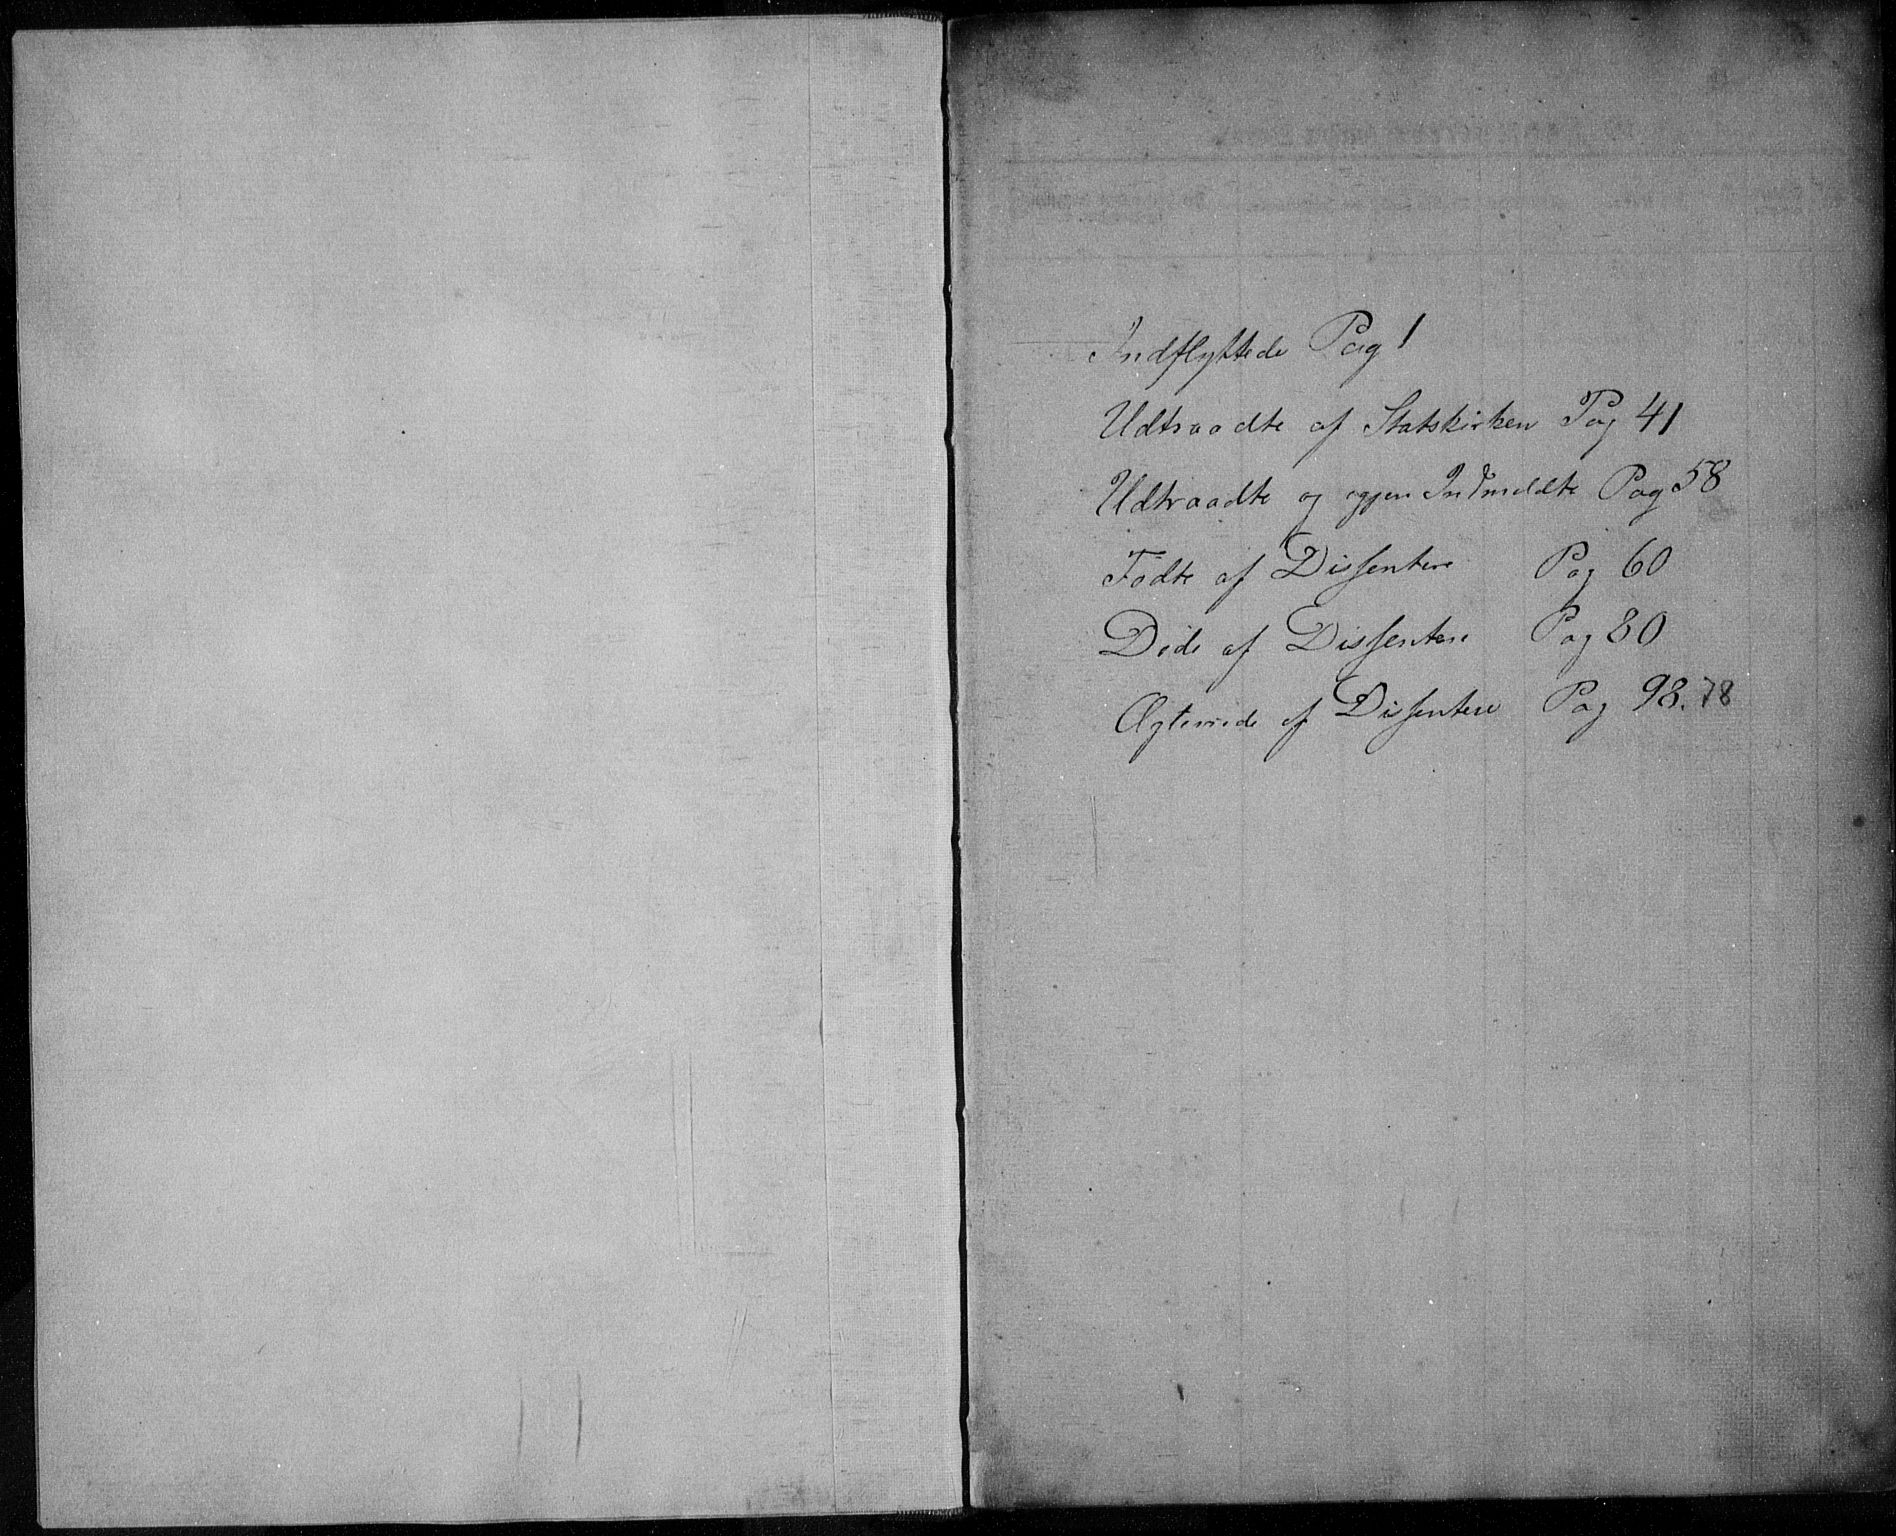 Indflyttede Pag 1
Udtraadte af Statskirken Pag 41
Udtraadte og egjen Indmeldte Pag 58
Fødte af Dissentere Pag 60
Døde af Dissentere Pag 80
Ægteviede af Dissentere Pag 98. 78